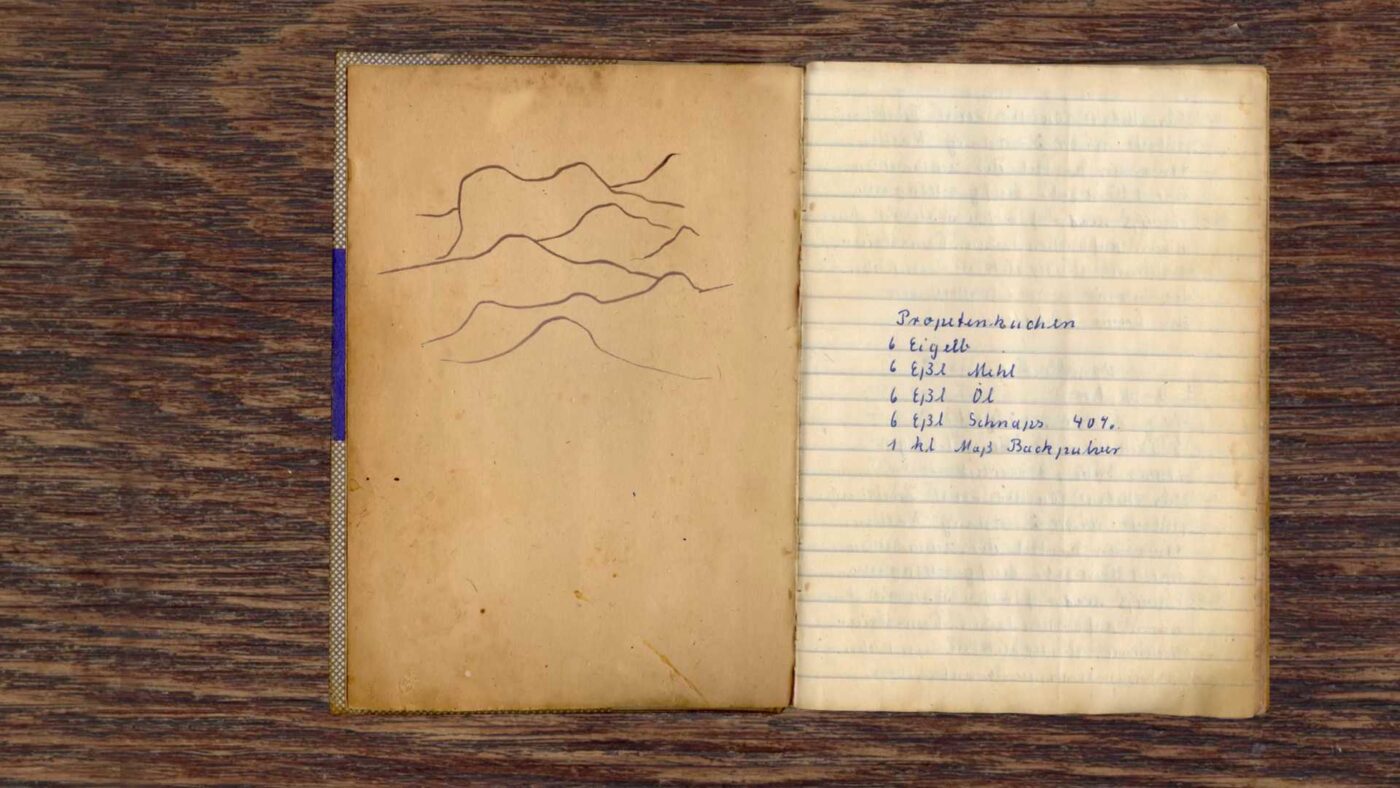 Propetenkuchen
6 Eigelb
6 Eßl Mehl
6 Eßl Öl
6 Eßl Schnaps 40%.
1 kl Maß Backpulver